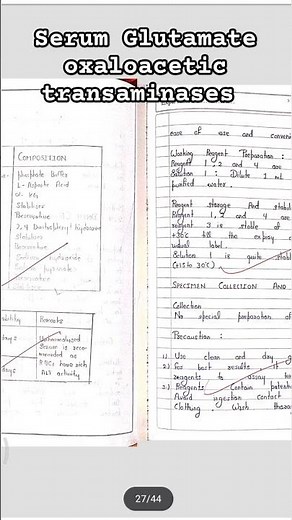 Serum Glutamate
oxaloacetic
transaminases
COMPOSITION
phosphate Buffer
L- Aspartic Acid
Stabilizers
Preservative
2,4 Dinitrophenyl hydrazine
Stabilizers
Preservative
Sodium hydroxide
Remark
Days
Unhaemolyzed
Serum is reco-
mmended as
RBCs have rich
ALT activity
Days
ease of use and conveni
Working Reagent Preparation :
Reagent 1, 2 and 4 are
Solution 1 : Dilute 1 ml
purified water.
Reagent storage And stabil
Reagent 1, 2 and 4 are
reagent 3 is stable at
+30°C till the expiry
vidual label.
Solution 1 is quite stabl
(+15 to 30°C)
SPECIMEN COLLECTION AND
Collection
No special preparation of
Precaution :
1) Use clean and dry g
2) For best results it
reagents to assay tem
3.) Reagents Contain potentia
Avoid ingestion contact
clothing. Wash thoro
27/44